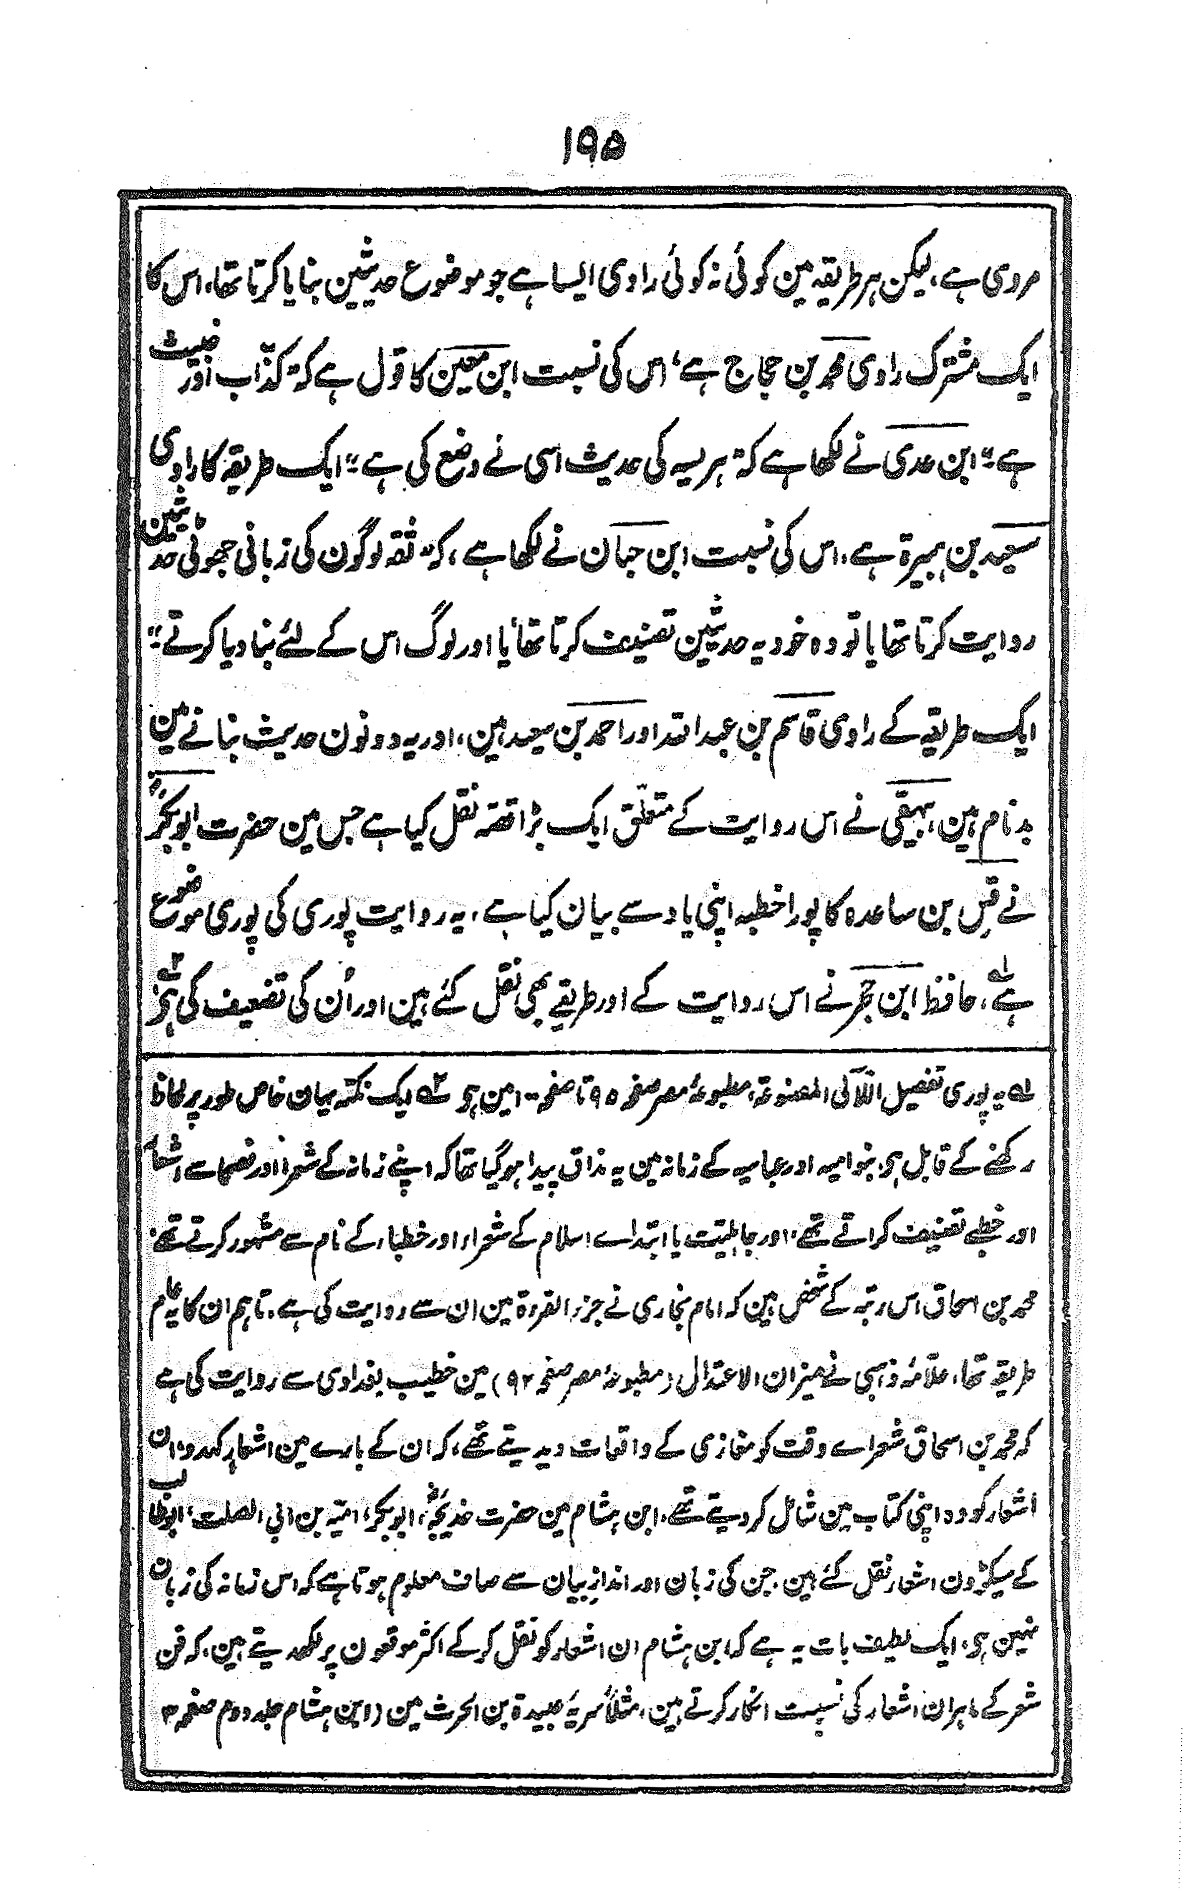 ۱۹۵
مروی ہے، لیکن ہر طریقہ مین کوئی نہ کوئی راوی ایسا ہے جو موضوع حدیثین بنایا کرتا تھا، اس کا
ایک مشترک راوی محمد بن حجاج ہے، اس کی نسبت ابن معین کا قول ہے کہ "کذّاب اور خبیث
ہے" ابن عدی نے لکھا ہے کہ "ہریسہ کی حدیث اسی نے وضع کی ہے" ایک طریقہ کا راوی
سعید بن ہبیرۃ ہے، اس کی نسبت ابن حبان نے لکھا ہے، کہ "ثقہ لوگون کی زبانی جھوٹی حدیثین
روایت کرتا تھا یا تو وہ خود یہ حدیثین تصنیف کرتا تھا یا اور لوگ اس کے لئے بنا دیا کرتے"
ایک طریقہ کے راوی قاسم بن عبداللہ اور احمد بن سعید ہین، اور یہ دونون حدیث بنانے مین
بدنام ہین، بیہقی نے اس روایت کے متعلّق ایک بڑا قصّہ نقل کیا ہے جس مین حضرت ابوبکرؓ
نے قس بن ساعدہ کا پورا خطبہ اپنی یاد سے بیان کیا ہے، یہ روایت پوری کی پوری موضوع
ہے لہ، حافظ ابن حجر نے اس روایت کے اور طریقے بھی نقل کئے ہین اور اُن کی تضعیف کی ہی ۲؎
لہ یہ پوری تفصیل اللآلی المصنوعۃ، مطبوعۂ مصر صفحہ ۹۵ تا صفحہ ۱۰۰ مین ہی ۲؎ ایک نکتہ یہان خاص طور پر لحاظ
رکھنے کے قابل ہی، بنوامیہ اور عباسیہ کے زمانہ مین یہ مذاق پیدا ہوگیا تھا کہ اپنے زمانہ کے شعرا اور فصحا سے اشعار
اور خطبے تصنیف کراتے تھے، اور جاہلیّت یا ابتداے اسلام کے شعراء اور خطباء کے نام سے مشہور کرتے تھے،
محمد بن اسحاق اس رتبہ کے شخص ہین کہ امام بخاری نے جزء القرءۃ مین ان سے روایت کی ہے، تاہم ان کا یہ عام
طریقہ تھا، علّامۂ ذہبی نے میزان الاعتدال (مطبوعۂ مصر صفحہ ۹۲) مین خطیب بغدادی سے روایت کی ہے
کہ محمد بن اسحاق شعراے وقت کو مغازی کے واقعات دیدیتے تھے، کہ ان کے بارے مین اشعار کہدو، ان
اشعار کو وہ اپنی کتاب مین شامل کر دیتے تھے، ابن ہشام مین حضرت خدیجہؓ، ابوبکر، امیّہ بن ابی الصلت، ابوطالب
کے سیکڑون اشعار نقل کئے ہین جن کی زبان اور اندازِ بیان سے صاف معلوم ہوتا ہے کہ اس زمانہ کی زبان
نہین ہی، ایک لطیف بات یہ ہے کہ ابن ہشام ان اشعار کو نقل کرکے اکثر موقعون پر لکھدیتے ہین، کہ فن
شعر کے ماہر ان اشعار کی نسبت انکار کرتے ہین، مثلاً سریۂ عبیدۃ بن الحرث مین (ابن ہشام جلد دوم صفحہ ۳